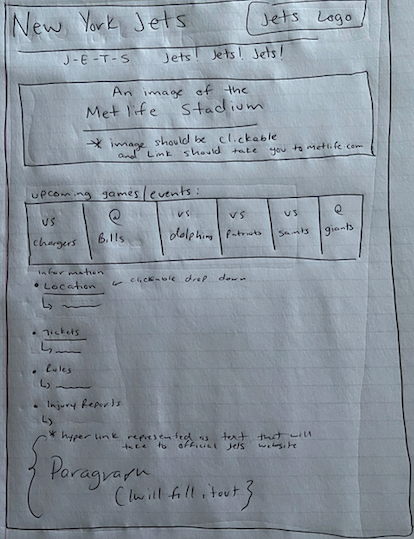 New York Jets
Jets Logo
J-E-T-S Jets! Jets! Jets!
An image of the
Metlife Stadium
* image should be clickable
and link should take you to Metlife.com
upcoming games/events:
vs chargers
@ Bills
vs dolphins
vs Patriots
vs saints
@ giants
information
• Location ← clickable drop down
↳
• Tickets
↳
• Rules
↳
• Injury Reports
↳
* hyperlink represented as text that will
take to official Jets website
Paragraph
(I will fill it out}